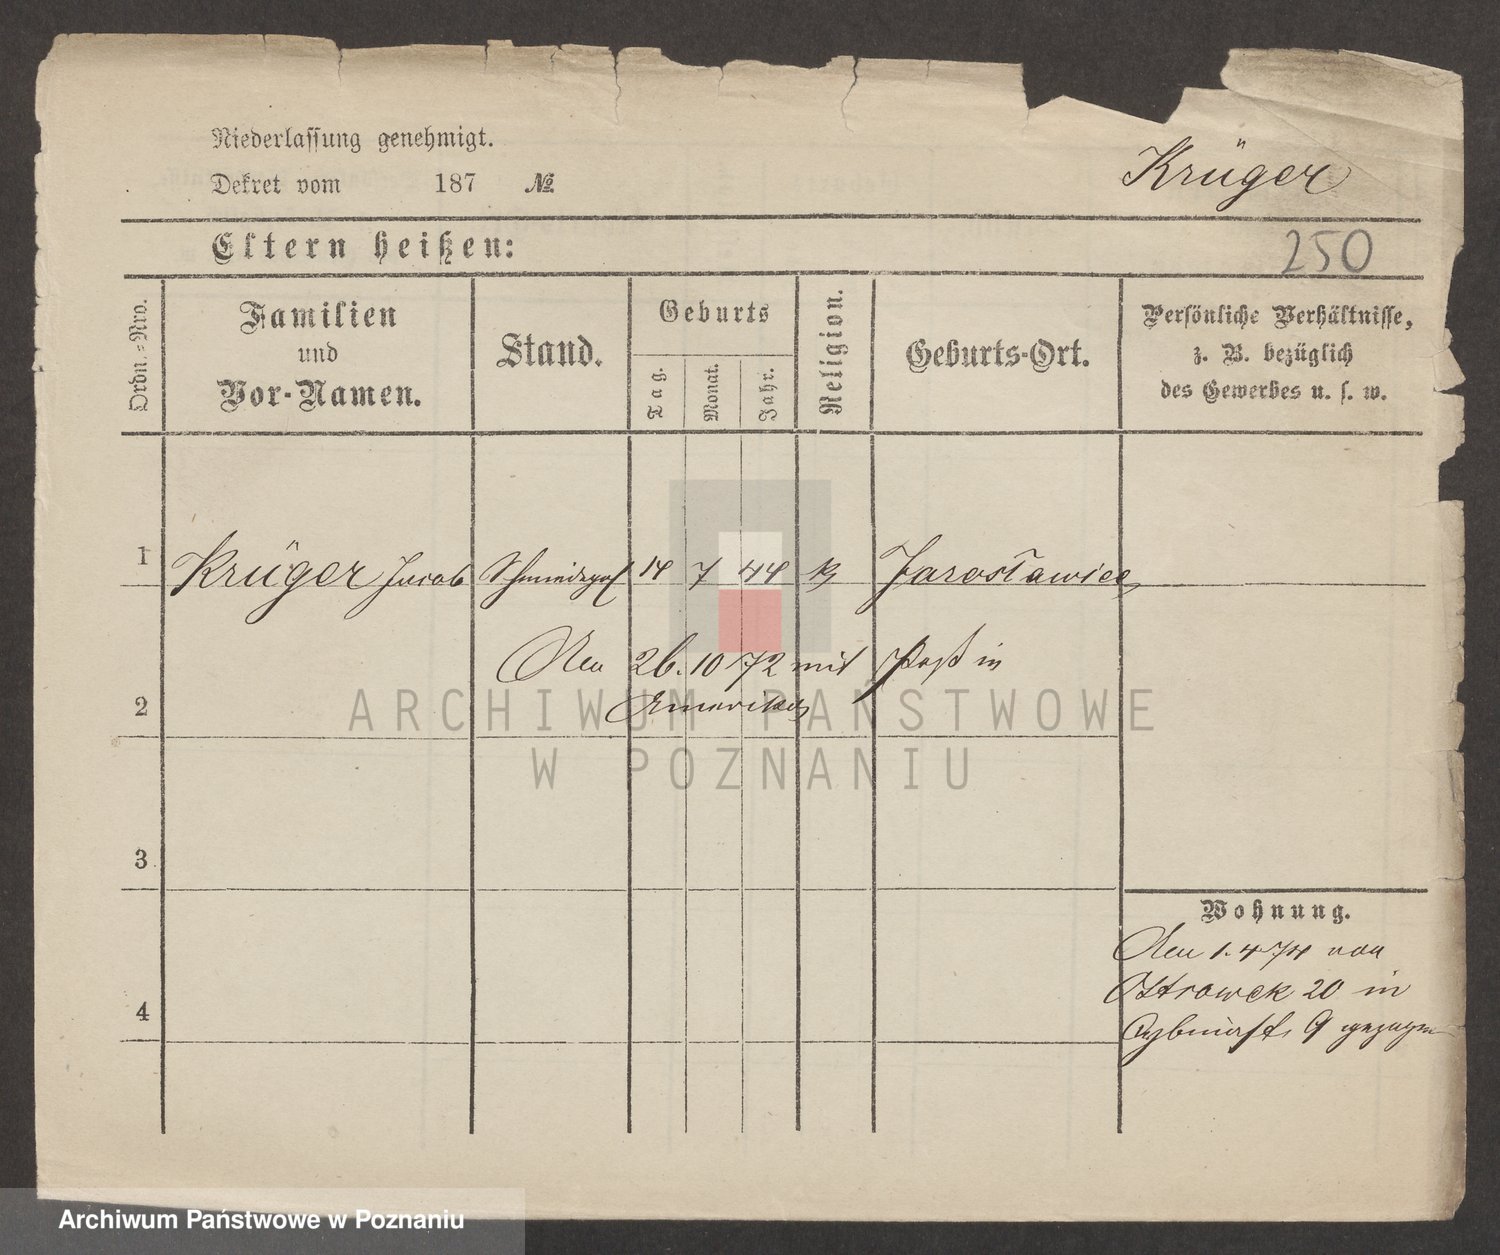 Niederlassung genehmigt.
Dekret vom 187 №
Krüger
Eltern heißen:
250
Ordn.-Nro.
Familien
und
Vor-Namen.
Stand.
Geburts
Tag.
Monat.
Jahr.
Religion.
Geburts-Ort.
Persönliche Verhältnisse,
z. B. bezüglich
des Gewerbes u. s. w.
1 Krüger Jacob Schmiedeges 14 7 44 k Jarosławiec
Den 26. 10 72 mit Paß in
2 Amerika
ARCHIWUM PAŃSTWOWE
W POZNANIU
3
Wohnung.
Den 1. 4 74 von
Ostrowek 20 in
4 9 gezogen
Archiwum Państwowe w Poznaniu